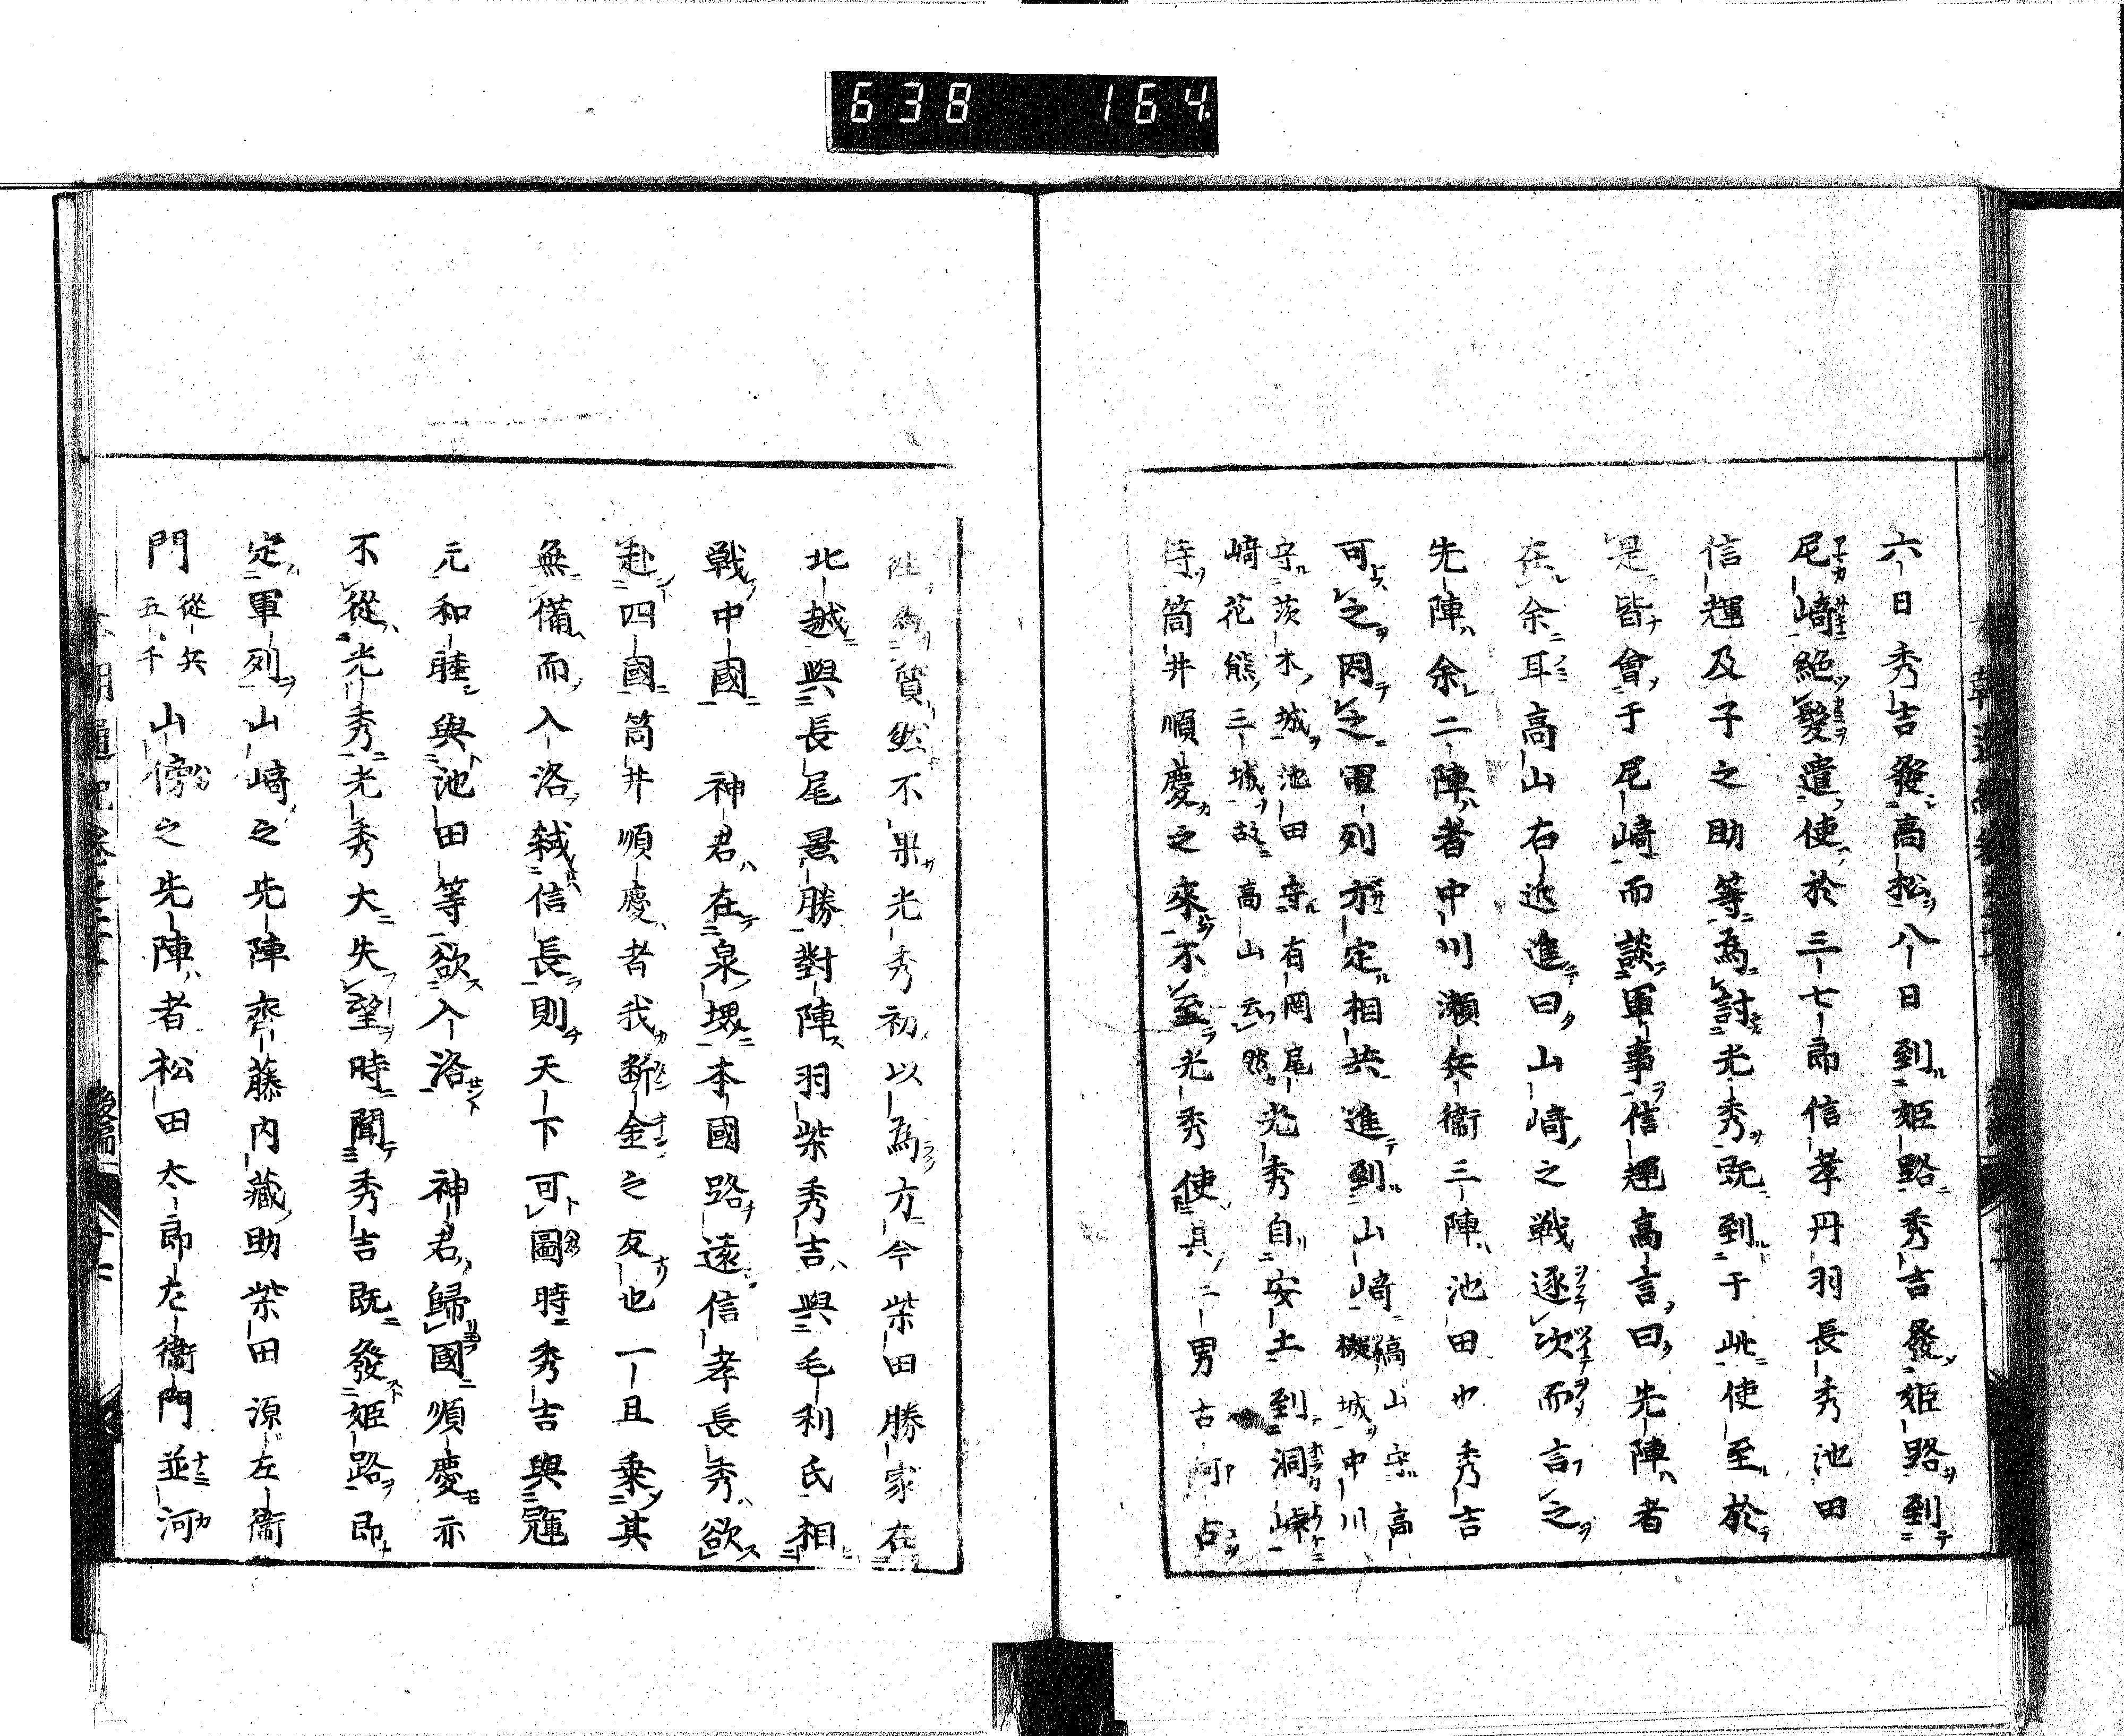 638 164
六日秀吉發高松八日到姫路秀吉發姫路到
尼﨑絕髮遣使於三七郎信孝丹羽長秀池田
信輝及子之助等為討光秀既到于此使至於
是皆會于尼﨑而談軍事信輝高言曰先陣者
在余耳高山右近進曰山﨑之戦逐次而言之
先陣余二陣者中川瀬兵衞三陣池田也秀吉
可之因之軍列方定相共進到山﨑
槁山守高
擬城中川
守茨木城池田守有岡尾
﨑花熊三城故高山云然
光秀自安土到洞峠
待筒井順慶之來不至光秀使其二男古
為質然不果光秀初以為方今柴田勝家在
北越與長尾景勝對陣羽柴秀吉與毛利氏相
戦中國 神君在泉堺本國路遠信孝長秀欲
赴四國筒井順慶者我断金之友也一旦乗其
無備而入洛弑信長則天下可圖時秀吉與輝
元和睦與池田等欲入洛 神君歸國順慶亦
不從光秀光秀大失望時聞秀吉既發姫路即
定軍列山﨑之先陣齊藤内藏助柴田源左衞
門
從兵
五千
山傍之先陣者松田太郎左衞門並河
後編